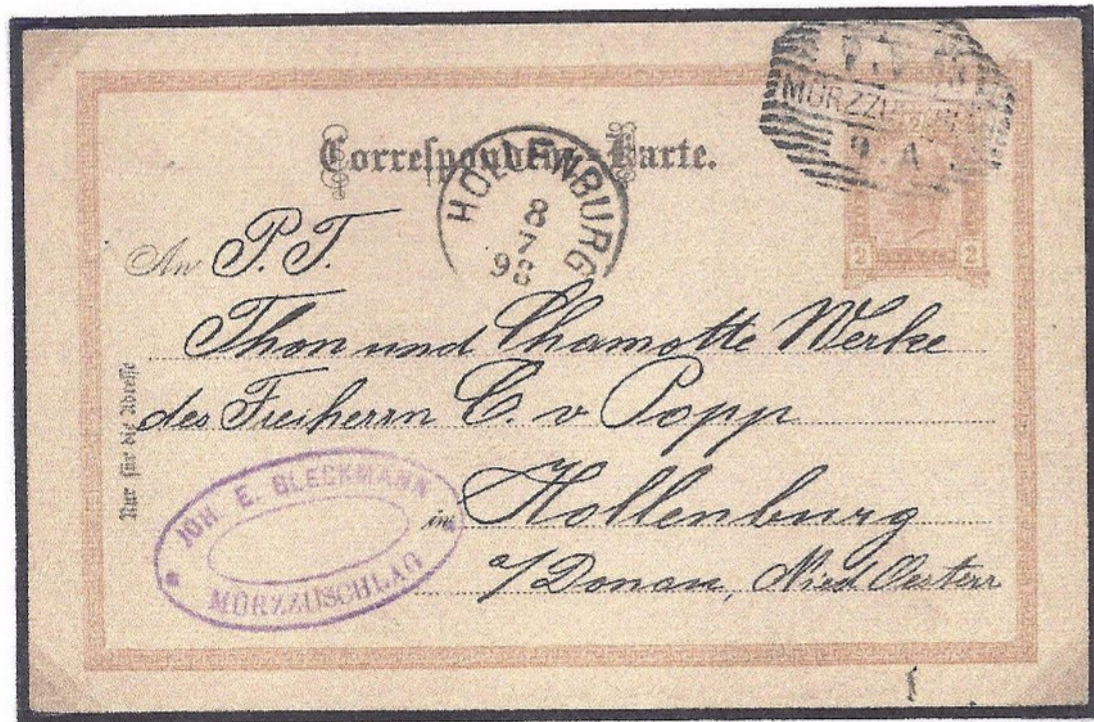 Correspondenz-Karte.
MÜRZZUSCHLAG
9. A
2 2
HOLLENBURG
8
7
98
An P. T.
Thon und Chamotte Werke
des Freiherrn C. v Popp
in Hollenburg
a/Donau, Nied Oesterr
Nur für die Adresse
JOH. E. BLECKMANN
MÜRZZUSCHLAG